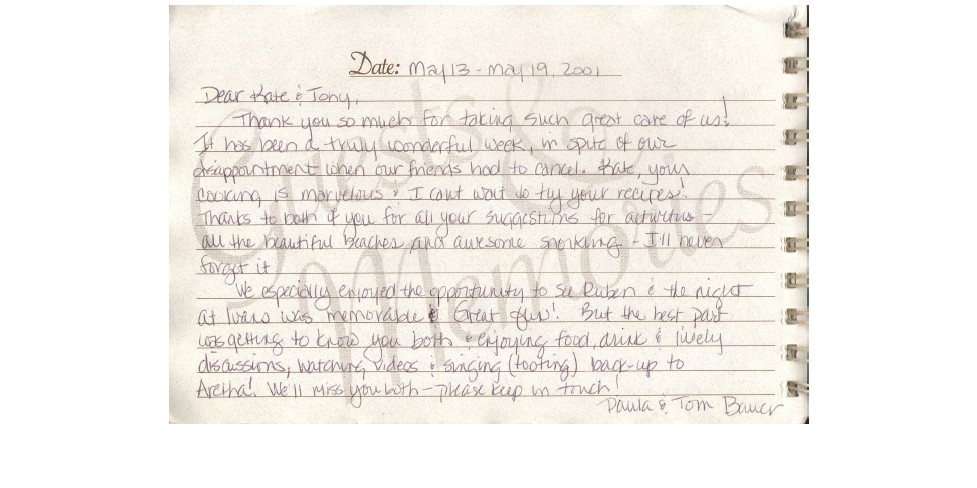 Date: May 13 - May 19, 2001
Dear Kate & Tony,
Thank you so much for taking such great care of us!
It has been a truly wonderful week, in spite of our
disappointment when our friends had to cancel. Kate, your
cooking is marvelous & I can't wait to try your recipes!
Thanks to both of you for all your suggestions for activities -
all the beautiful beaches and awesome snorkling - I'll never
forget it
We especially enjoyed the opportunity to see Ruben & the night
at Ivans was memorable & Great fun! But the best part
was getting to know you both & enjoying food, drink & lively
discussions, watching videos & singing (tooting) back-up to
Aretha! We'll miss you both - please keep in touch!
Paula & Tom Bauer
Guests &
Memories